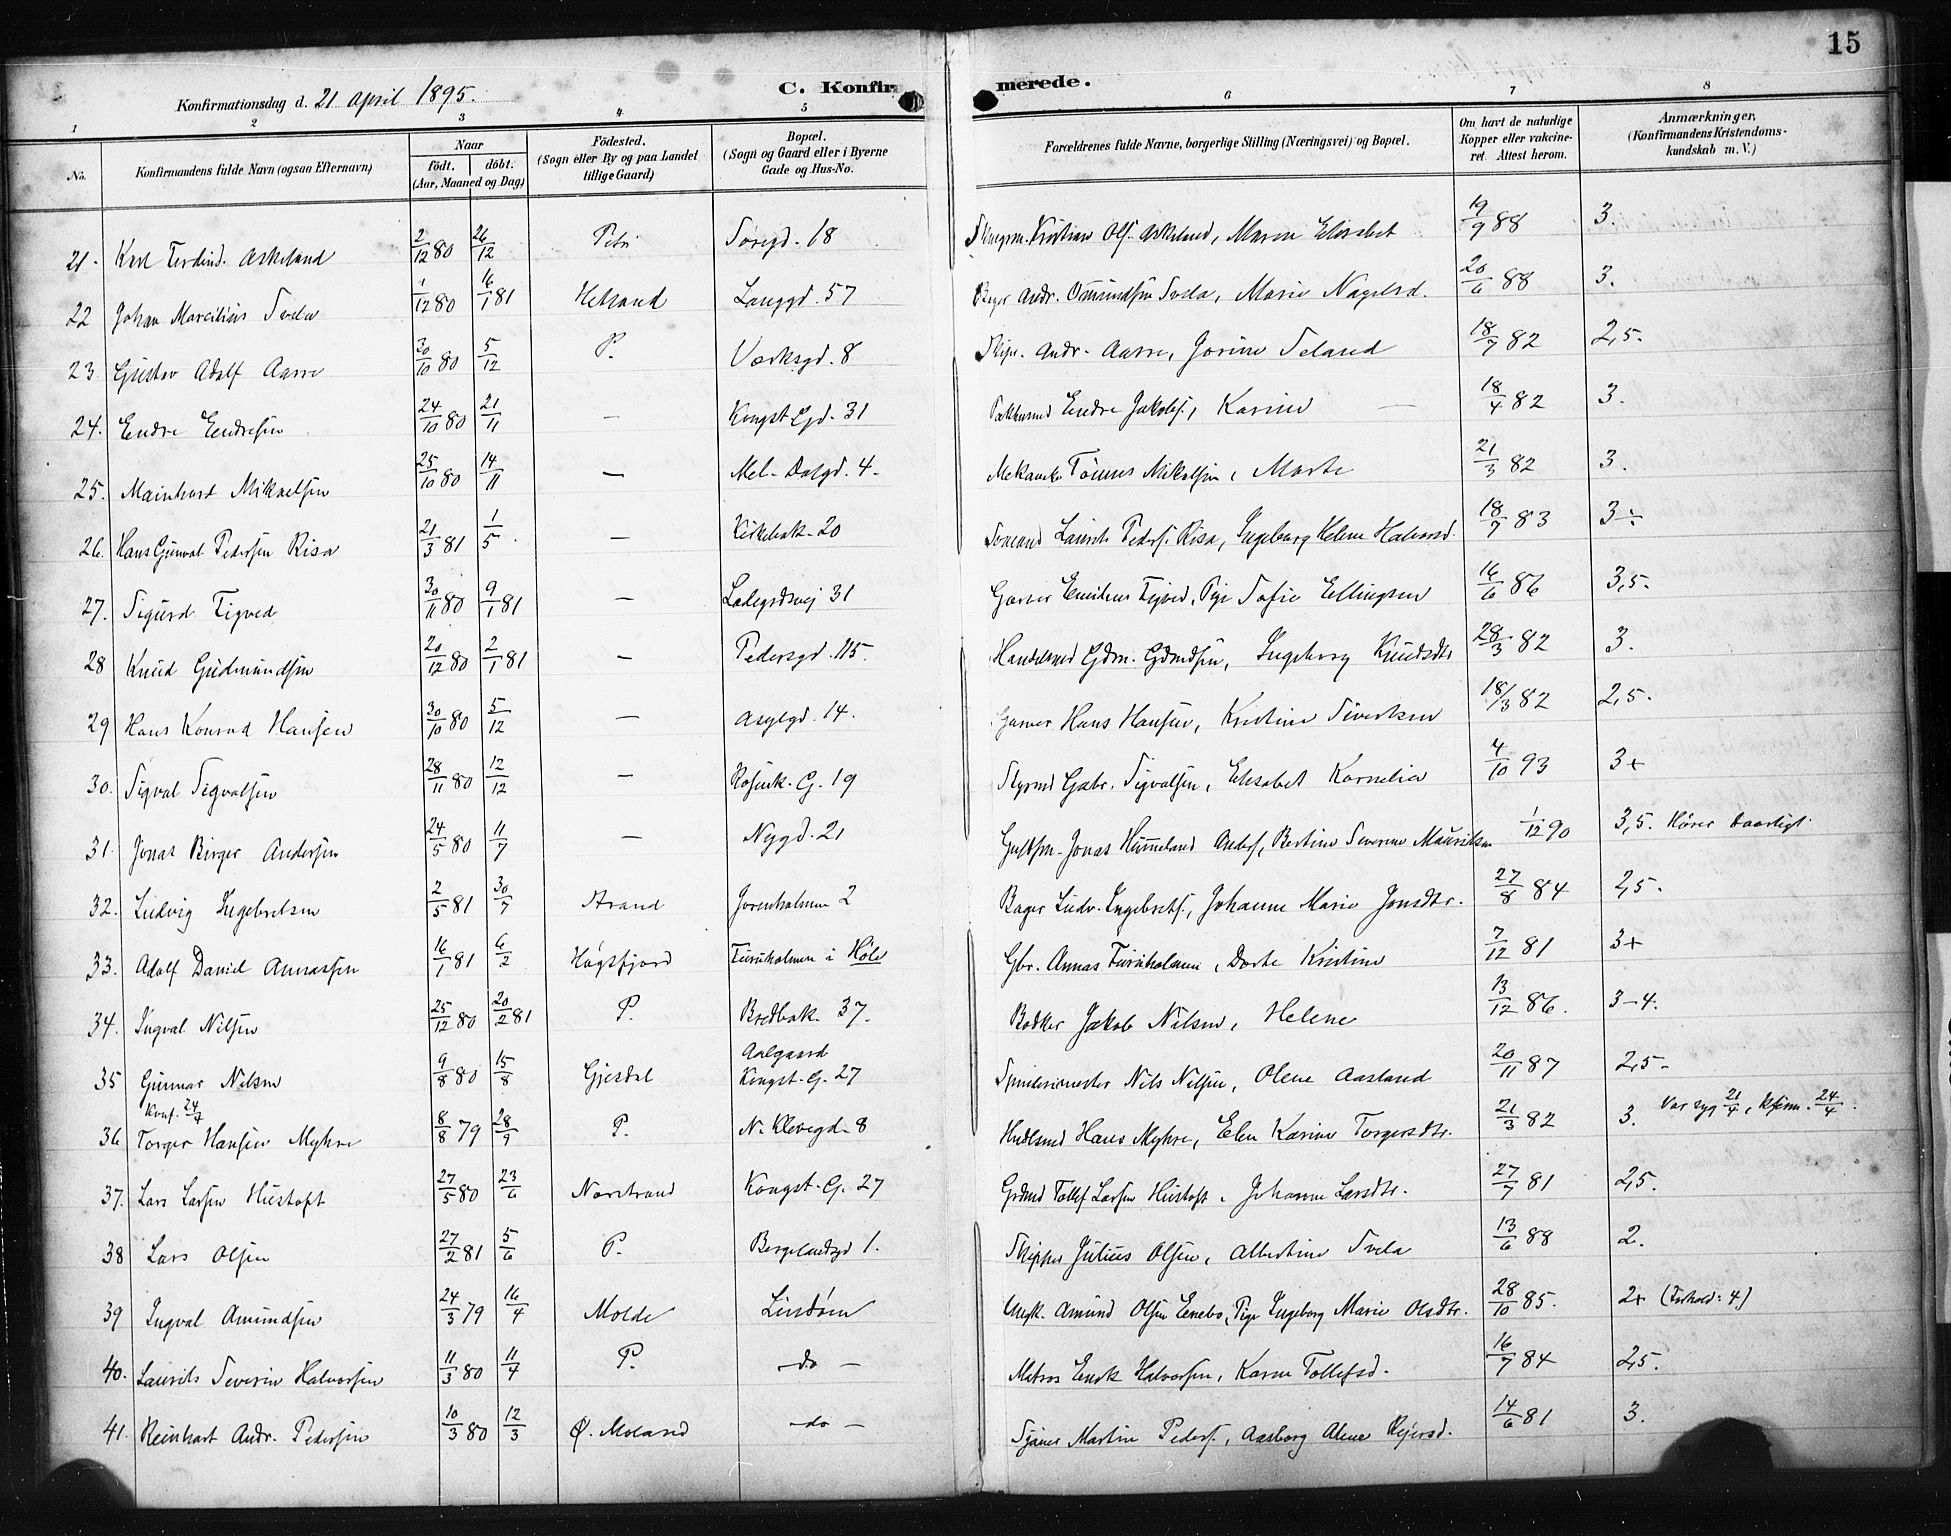 15
Konfirmationsdag d. 21 April 1895.
C. Konfirmerede.
1 2 3 4 5 6 7 8
No.
Konfirmandens fulde Navn (ogsaa Efternavn)
Naar
født. døbt.
(Aar, Maaned og Dag)
Fødested.
(Sogn eller By og paa Landet
tillige Gaard)
Bopæl.
(Sogn og Gaard eller i Byerne
Gade og Hus-No.
Forældrenes fulde Navne, borgerlige Stilling (Næringsvei) og Bopæl.
Om havt de naturlige
Kopper eller vakcine-
ret. Attest herom.
Anmærkninger,
(Konfirmandens Kristendoms-
kundskab m. V.)
21. Karl Ferdind. Askeland 2/12 80 26/12 Petri Søregd. 18 Kristian Ols. Askeland, Maren Elisabet 19/9 88 3.
22 Johan Marcilius Tvela 1/12 80 16/1 81 Hetland Langgd. 57 Bager Andr. Omundsen Tvela, Marie Nagelsd. 20/6 88 3.
23. Gustav Adolf Aarre 30/10 80 5/12 P. Værksgd. 8 Skipr. Andr. Aarre, Jorine Seland 18/7 82 2,5.
24. Endre Endresen 24/10 80 21/11 — Kongst. Gd. 31 Pakhusmd Endre Jakobs., Karine — 18/4 82 3.
25. Mainhard Mikaelsen 25/10 80 14/11 — Mel-Dalgd. 4. Mekanik. Tønnes Mikalsen, Marte 21/3 82 3.
26. Hans Gunval Pedersen Risa 21/3 81 1/5. — Kirkebak. 20 Sømand Laurits Peders. Risa, Ingeborg Helene Halvorsd. 18/7 83 3÷
27. Sigurd Tigved 30/11 80 9/1 81 — Ladegrdsvej 31 Garver Emilius Tigved, Pige Sofie Ellingsen 16/6 86 3,5.
28 Knud Gudmundsen 20/12 80 2/1 81 — Pedersgd. 115. Handelsmd Gdm. Gdmdsen, Ingeborg Knudsdtr 28/3 82 3.
29 Hans Konrad Hansen 30/10 80 5/12 — Asylgd. 14. Garver Hans Hansen, Kristine Sivertsen 18/3 82 2,5.
30. Sigval Sigvalsen 28/11 80 12/12 — Rosenk. G. 19 Styrmd Gabr. Sigvalsen, Elisabet Kornelia 4/10 93 3+
31. Jonas Birger Andersen 24/5 80 11/7 — Nygd. 21 Jonas Hummeland Anders., Bertine Severine Mauritsen 1/12 90 3,5. Hører daarligt.
32. Ludvig Ingebretsen 2/5 81 30/7 Strand Jorenholmen 2 Bager Ludv. Ingebrets., Johanne Marie Jonsdtr. 27/8 84 2,5.
33. Adolf Daniel Annassen 16/1 81 6/2 Høgsfjord Furuholmen i Høle Gbr. Annas Furuholmen, Dorte Kristine 7/12 81 3+
34. Ingval Nilsen 25/12 80 20/2 81 P. Bredbak. 37. Bødker Jakob Nilsen, Helene 13/12 86. 3-4.
35 Gunnar Nilsen 9/8 80 15/8 Gjesdal Aalgaard
Kongst. G. 27 Spinderimester Nils Nilsen, Olene Aasland 20/11 87 2,5.
Konf. 24/4
36 Torger Hansen Myhre 8/8 79 28/9 P. N. Klevegd. 8 Hndlsmd Hans Myhre, Elen Karine Torgersdtr. 21/3 82 3. Var syg 21/4, kfirm. 24/4.
37. Lars Larsen Hustoft 27/5 80 23/6 Narstrand Kongst. G. 27 Grdmd Tollef Larsen Hustoft, Johanne Larsdtr. 27/7 81 2,5.
38 Lars Olsen 27/2 81 5/6 P. Bergelandsgd 1. Skipper Julius Olsen, Albertine Tvela 13/6 88 2.
39 Ingval Amundsen 24/3 79 16/4 Molde Lindøen Ungk. Amund Olsen Enebo, Pige Ingeborg Marie Olsdtr. 28/10 85. 2+ (Forhold: 4.)
40. Laurits Severin Halvorsen 11/3 80 11/4 P. —do— Matros Enok Halvorsen, Karen Tollefsd. 16/7 84 2,5.
41. Reinhart Andr. Pedersen 10/3 80 12/3 Ø. Moland —do— Martin Peders., Aasborg Alene Rejersd. 14/6 81 3.